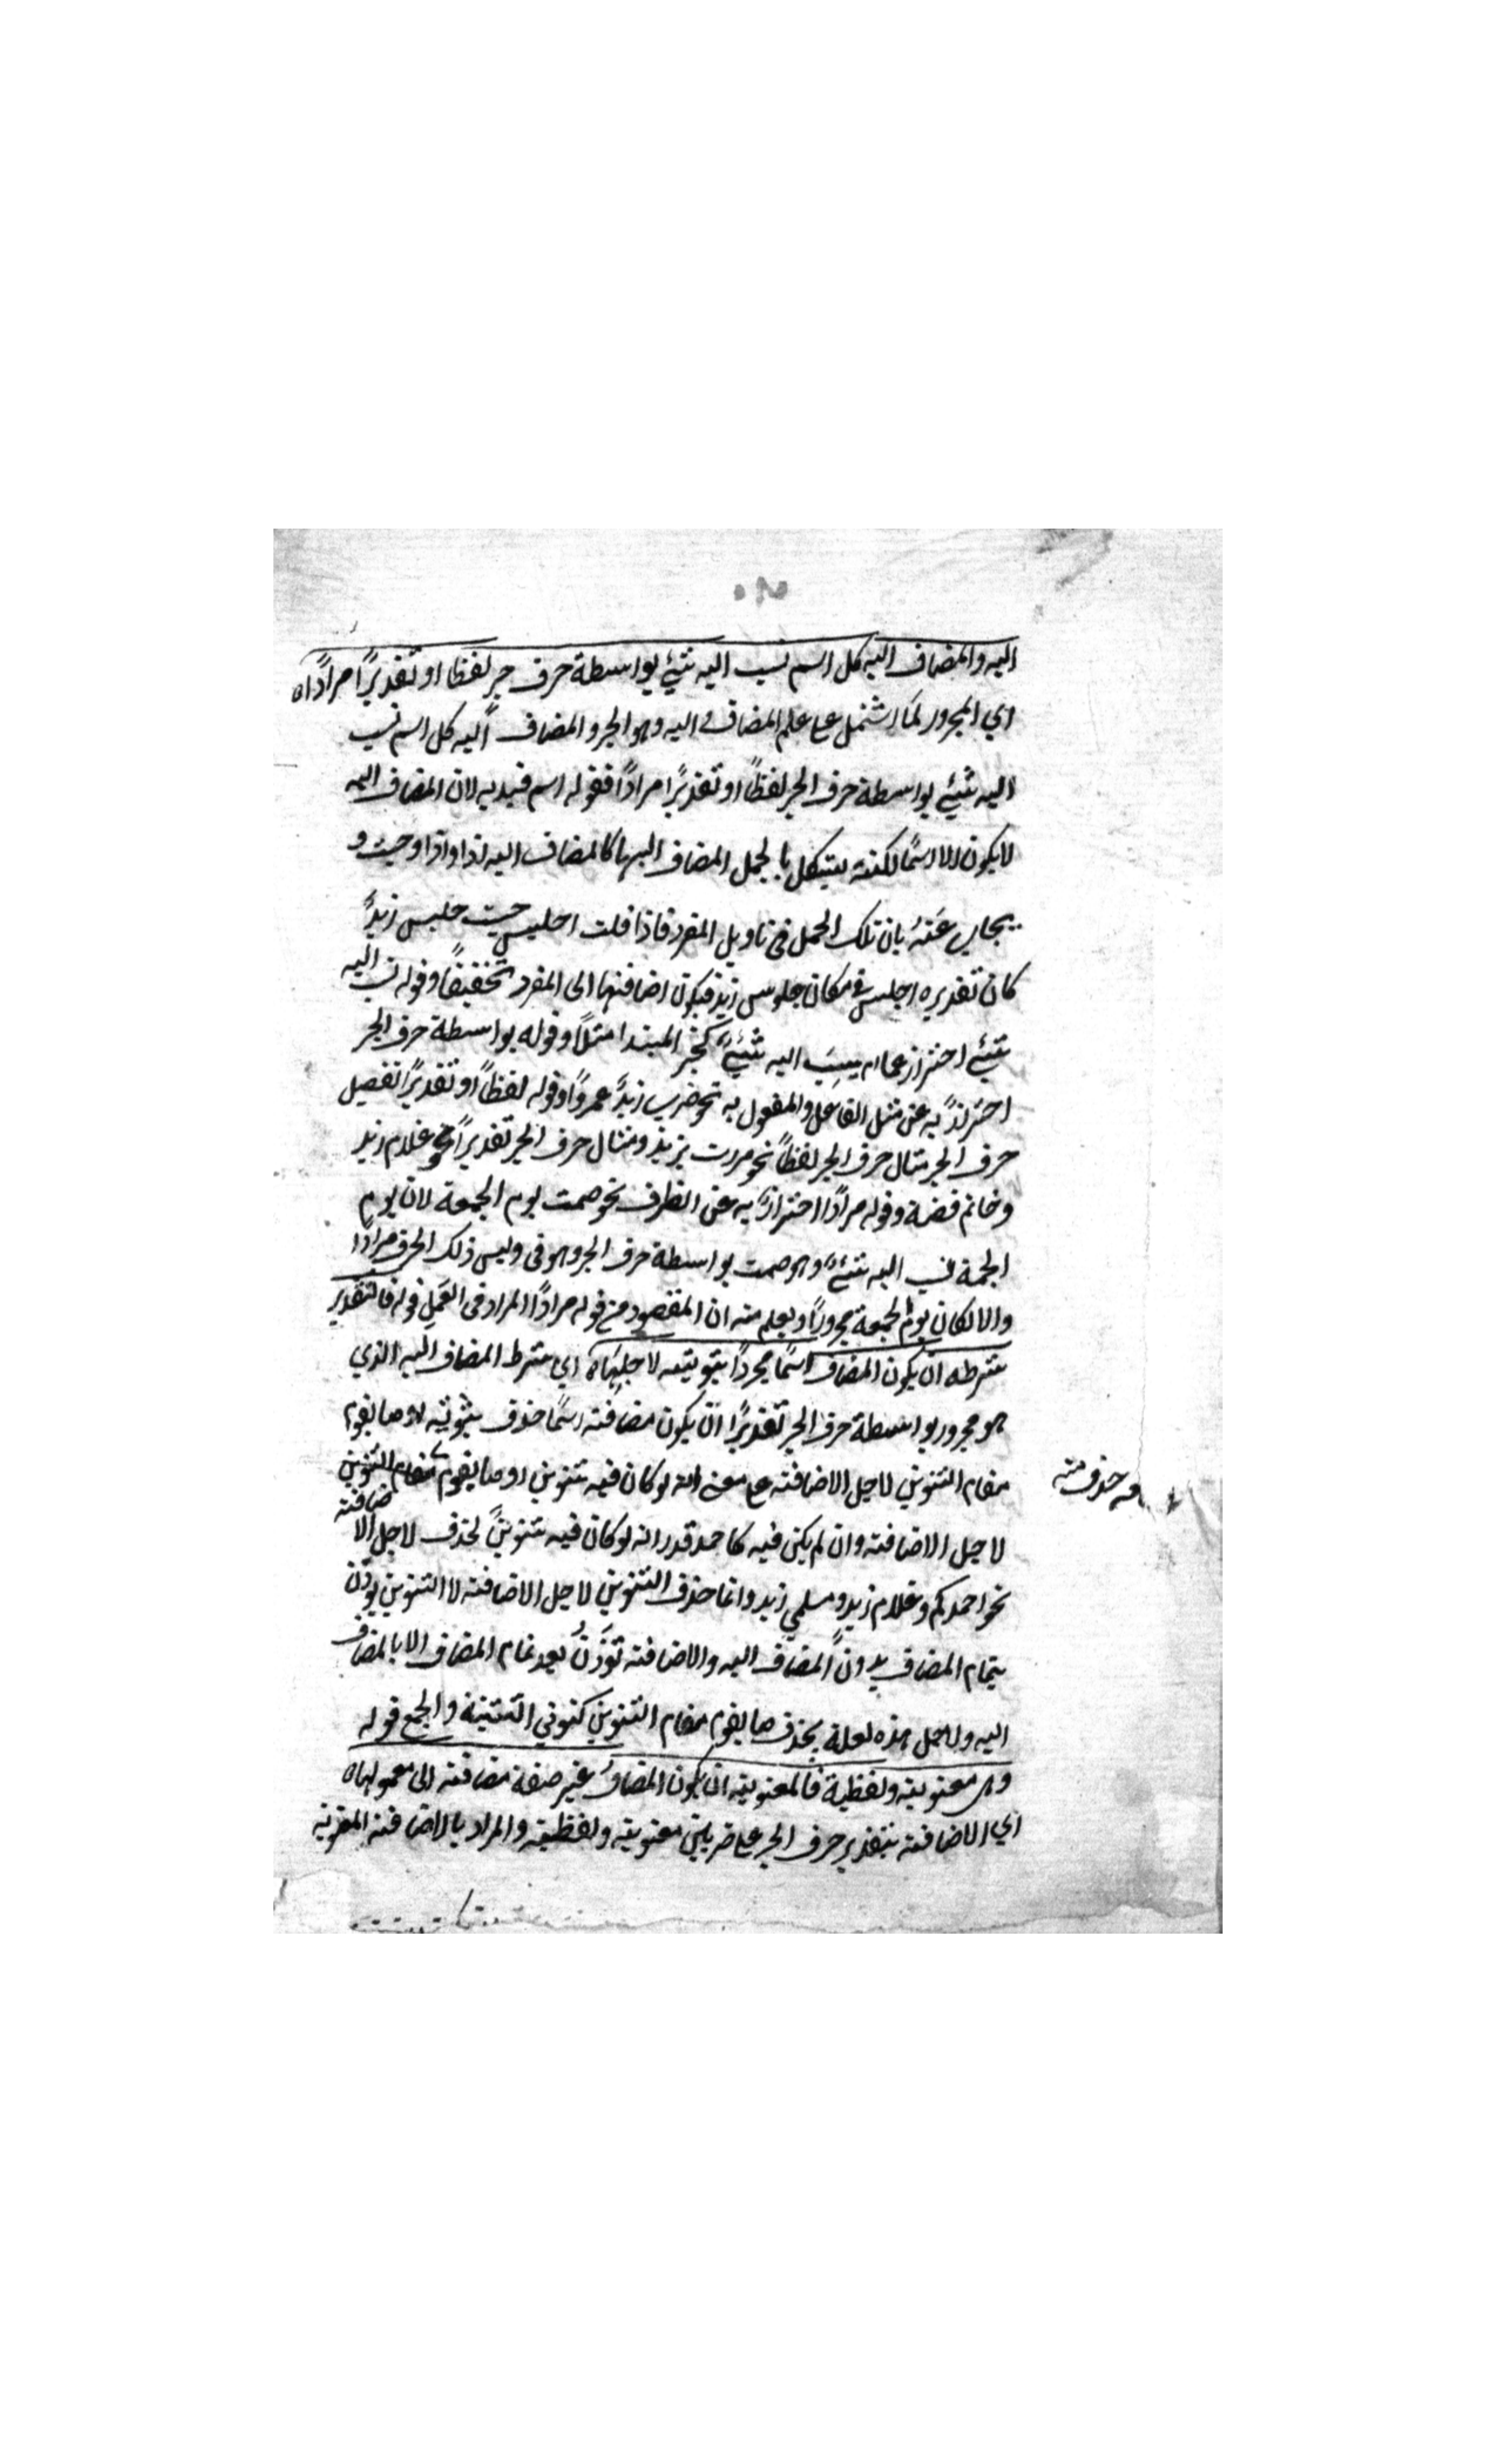 اليه والمضاف اليه كل اسم نسب اليه شيئ بواسطة حرف جر لفظا او تقديرًا مرادًا اه
اي المجرور لما اشتمل على علم المضاف اليه وهو الجر والمضاف اليه كل اسم نسب
اليه شيئ بواسطة حرف الجر لفظًا او تقديرًا مرادًا فقوله اسم قيد به لان المضاف اليه
لا يكون الا اسمًا لكنه يشكل بالجمل المضاف اليها كالمضاف اليه اذا واذ وحيث و
يجاب عَنهُ بان تلك الجمل في تاويل المفرد فاذا قلت اجلس حيث جلس زيدً
كان تقديره اجلس في مكان جلوس زيد فيكون اضافتها الى المفرد تحقيقًا وقوله نسب اليه
شيئ احتراز عما لم ينسَب اليه شيئً كخبر المبتدا مثلًا وقوله بواسطة حرف الجر
احترازً به عن مثل الفاعل والمفعول به نحو ضرب زيدً عمروًا وقوله لفظًا او تقديرًا تفصيل
حرف الجر مثال حرف الجر لفظًا نحو مررت بزيد ومثال حرف الجر تقديرًا نحو غلام زيد
وخاتم فضة وقوله مرادًا احترازً به عن الظرف نحو صمت يوم الجمعة لان يوم
الجمعة نسب اليه شيئً وهو صمت بواسطة حرف الجر وهو في وليس ذلك الحرف مرادًا
والا لكان يوم الجمعة مجرورًا ويعلم منه ان المقصود من قوله مرادًا المراد في العَمل قوله فالتقدير
شرطه ان يكون المضاف اسمًا مجردًا تنوينه لاجلهَا اه اي شرط المضاف اليه الذي
هو مجرور بواسطة حرف الجر تقديرًا ان يكون مضافه اسمًا حذف تنوينه او ما يقوم
مقام التنوين لاجل الاضافة على معنى انه لو كان فيه تنوين او ما يقوم مقام التنوين
حذف منه
لاجل الاضافة وان لم يكن فيه كاحمد قدر انه لو كان فيه تنوينً لحذف لاجل الاضافة
نحو احمدكم وغلام زيد ومسلمي زيد وانما حذف التنوين لاجل الاضافة لا التنوين يوذن
بتمام المضاف بدون المضاف اليه والاضافة توذن بعد تمام المضاف الا بالمضاف
اليه ولاجل هذه لعلة يحذف ما يقوم مقام التنوين كنوني التثنية والجمع قوله
وهى معنوية ولفظية فالمعنوية ان يكون المضافُ غير صفة مضافة الى معمولها اه
اي الاضافة بتقدير حرف الجر على ضربين معنوية ولفظية والمراد بالاضافة المعنوية